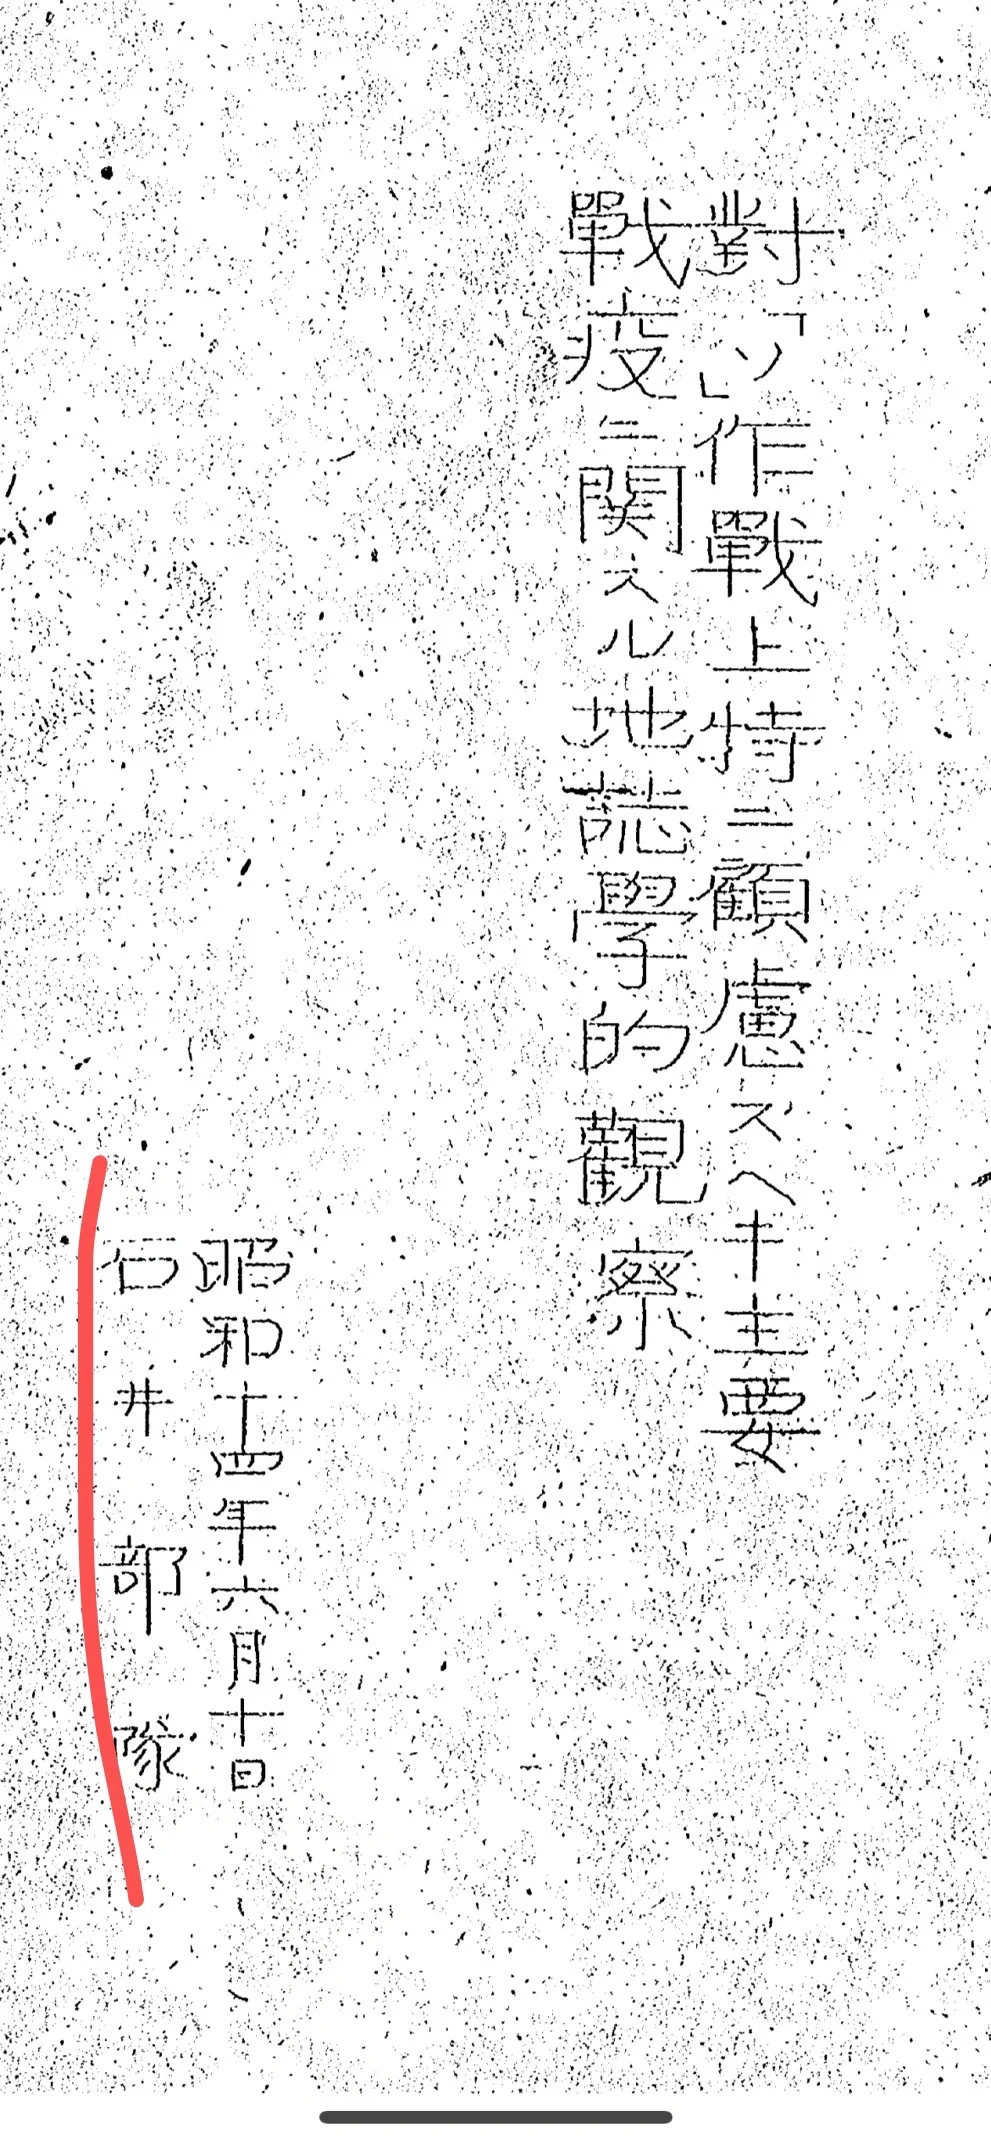 對「ソ」作戰上特ニ顧慮スヘキ主要
戰疫ニ関スル地誌學的觀察
昭和十四年六月十日
石井部隊